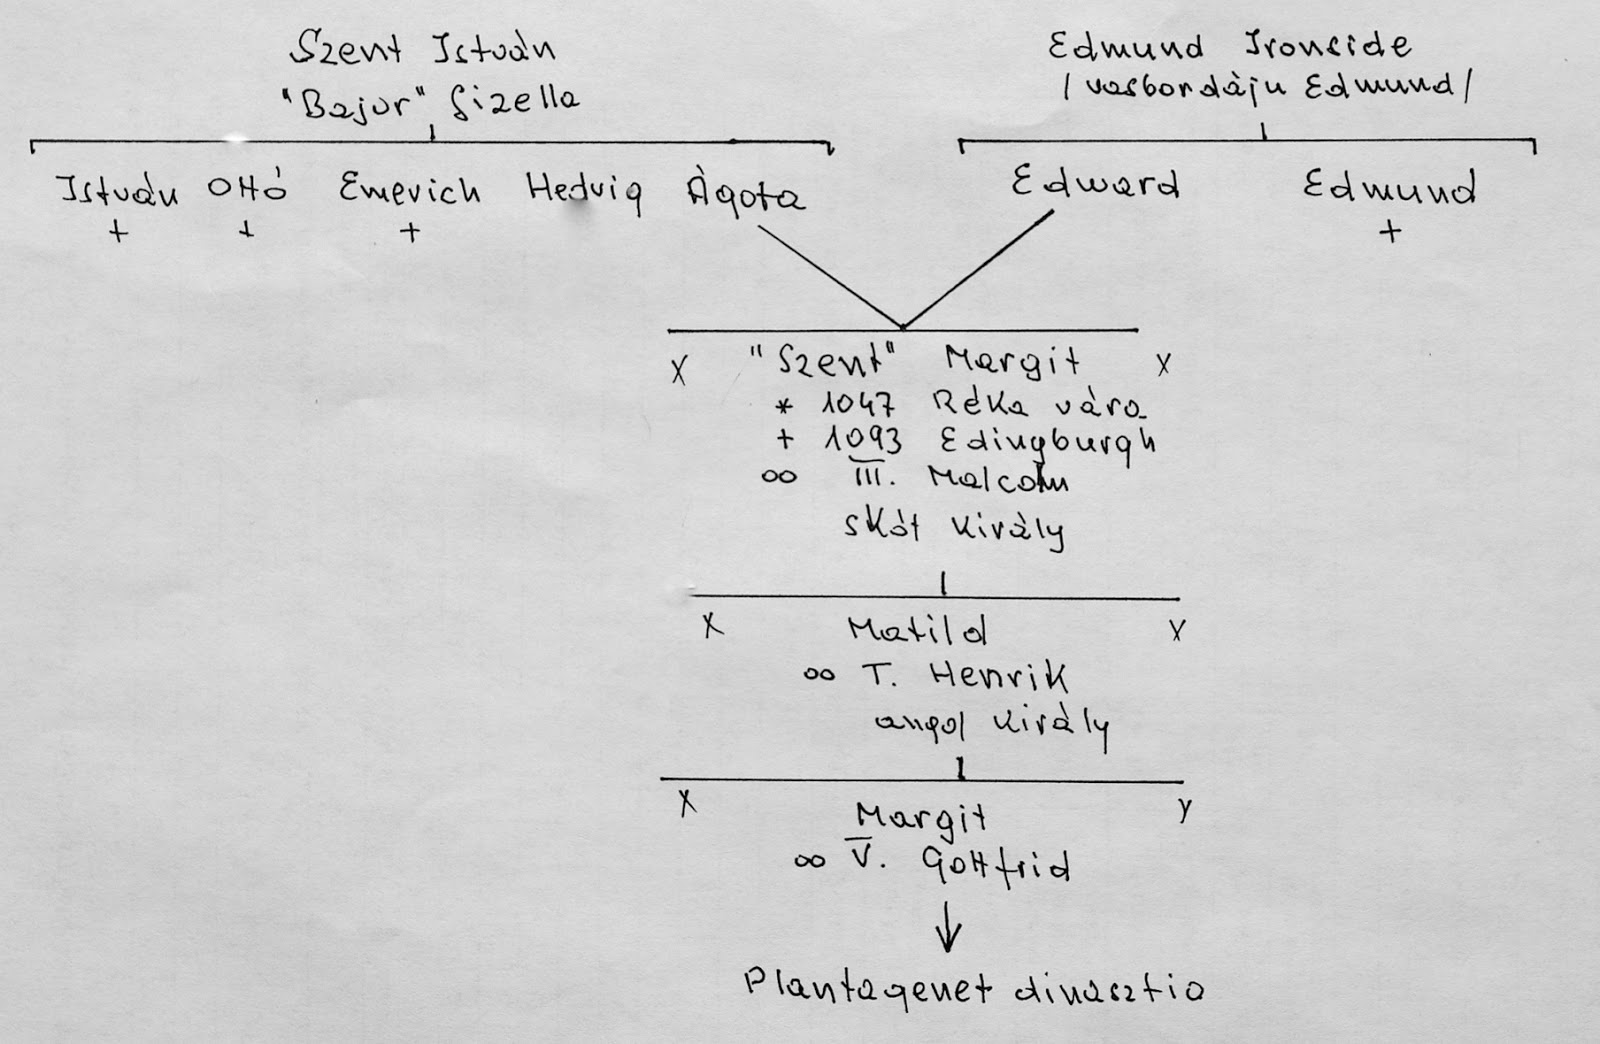 Szent István
"Bajor" Gizella
Edmund Ironside
/vasbordáju Edmund/
István Ottó Emerich Hedvig Ágota
+ + +
Edward Edmund
+
x "Szent" Margit x
* 1047 Réka vára
+ 1093 Edingburgh
∞ III. Malcolm
skót király
x Matild x
∞ I. Henrik
angol király
x Margit y
∞ V. Gottfrid
↓
Plantagenet dinasztia